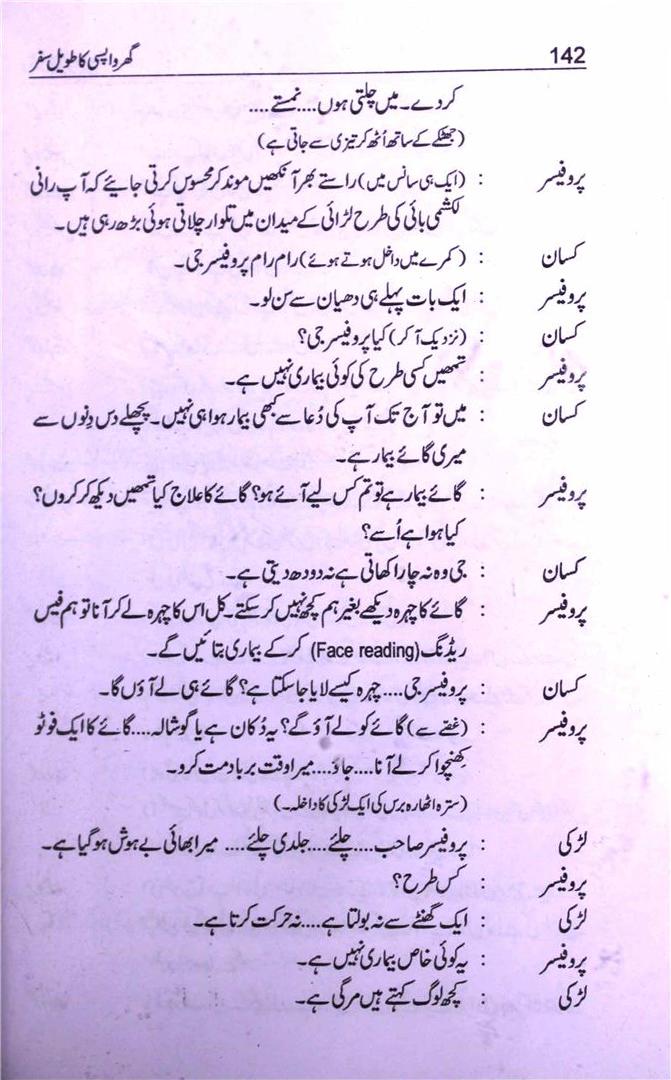 142 گھر واپسی کا طویل سفر
کر دے۔ میں چلتی ہوں.... نمستے....
(جھٹکے کے ساتھ اُٹھ کر تیزی سے جاتی ہے)
پروفیسر : (ایک ہی سانس میں) راستے بھر آنکھیں موند کر محسوس کرتی جایئے کہ آپ رانی
لکشمی بائی کی طرح لڑائی کے میدان میں تلوار چلاتی ہوئی بڑھ رہی ہیں۔
کسان : (کمرے میں داخل ہوتے ہوئے) رام رام پروفیسر جی۔
پروفیسر : ایک بات پہلے ہی دھیان سے سن لو۔
کسان : (نزدیک آ کر) کیا پروفیسر جی؟
پروفیسر : تمھیں کسی طرح کی کوئی بیماری نہیں ہے۔
کسان : میں تو آج تک آپ کی دُعا سے کبھی بیمار ہوا ہی نہیں۔ پچھلے دس دِنوں سے
میری گائے بیمار ہے۔
پروفیسر : گائے بیمار ہے تو تم کس لیے آئے ہو؟ گائے کا علاج کیا تمھیں دیکھ کر کروں؟
کیا ہوا ہے اُسے؟
کسان : جی وہ نہ چارا کھاتی ہے نہ دودھ دیتی ہے۔
پروفیسر : گائے کا چہرہ دیکھے بغیر ہم کچھ نہیں کر سکتے۔ کل اس کا چہرہ لے کر آنا تو ہم فیس
ریڈنگ (Face reading) کر کے بیماری بتائیں گے۔
کسان : پروفیسر جی.... چہرہ کیسے لایا جا سکتا ہے؟ گائے ہی لے آؤں گا۔
پروفیسر : (غصّے سے) گائے کو لے آؤ گے؟ یہ دُکان ہے یا گوشالہ.... گائے کا ایک فوٹو
کھنچوا کر لے آنا.... جاؤ.... میرا وقت برباد مت کرو۔
(سترہ اٹھارہ برس کی ایک لڑکی کا داخلہ۔)
لڑکی : پروفیسر صاحب.... چلئے.... جلدی چلئے.... میرا بھائی بے ہوش ہو گیا ہے۔
پروفیسر : کس طرح؟
لڑکی : ایک گھنٹے سے نہ بولتا ہے.... نہ حرکت کرتا ہے۔
پروفیسر : یہ کوئی خاص بیماری نہیں ہے۔
لڑکی : کچھ لوگ کہتے ہیں مرگی ہے۔